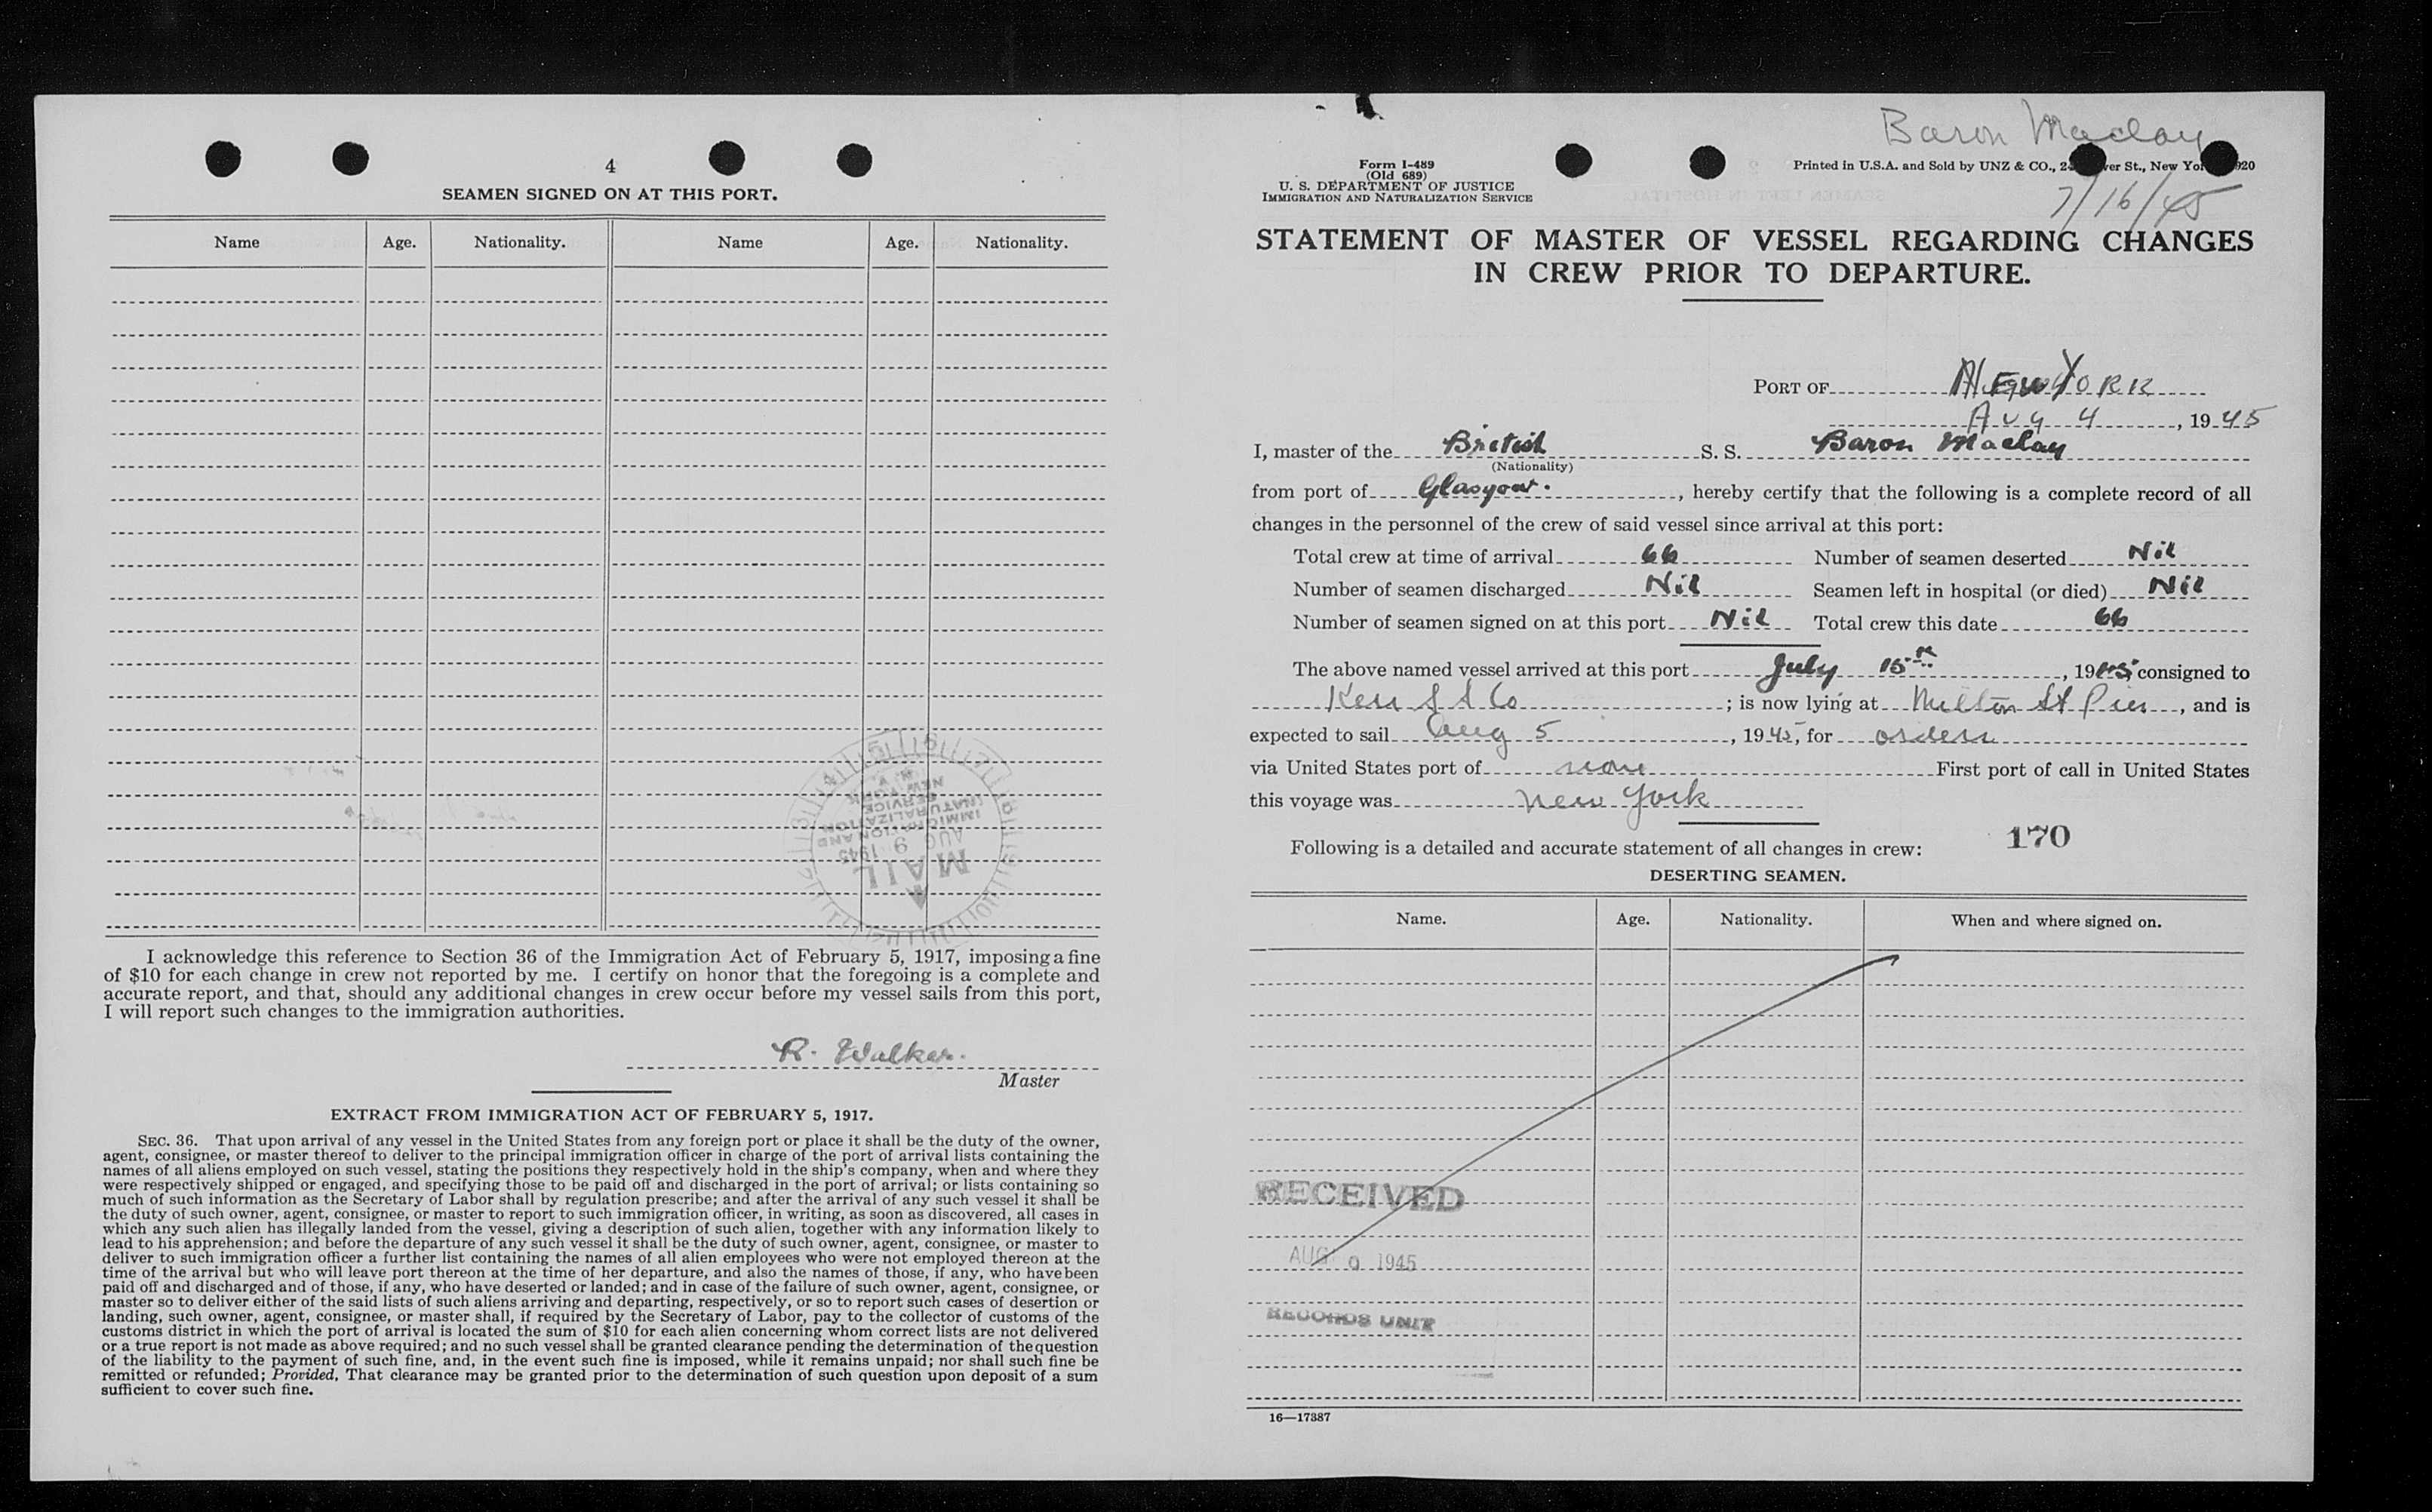 4
SEAMEN SIGNED ON AT THIS PORT.
Name Age. Nationality. Name Age. Nationality.
MAIL
AUG 9 1945
IMMIGRATION AND
NATURALIZATION
SERVICE
NEW YORK
N. Y.
I acknowledge this reference to Section 36 of the Immigration Act of February 5, 1917, imposing a fine
of $10 for each change in crew not reported by me. I certify on honor that the foregoing is a complete and
accurate report, and that, should any additional changes in crew occur before my vessel sails from this port,
I will report such changes to the immigration authorities.
R. Walker.
Master
EXTRACT FROM IMMIGRATION ACT OF FEBRUARY 5, 1917.
SEC. 36. That upon arrival of any vessel in the United States from any foreign port or place it shall be the duty of the owner,
agent, consignee, or master thereof to deliver to the principal immigration officer in charge of the port of arrival lists containing the
names of all aliens employed on such vessel, stating the positions they respectively hold in the ship's company, when and where they
were respectively shipped or engaged, and specifying those to be paid off and discharged in the port of arrival; or lists containing so
much of such information as the Secretary of Labor shall by regulation prescribe; and after the arrival of any such vessel it shall be
the duty of such owner, agent, consignee, or master to report to such immigration officer, in writing, as soon as discovered, all cases in
which any such alien has illegally landed from the vessel, giving a description of such alien, together with any information likely to
lead to his apprehension; and before the departure of any such vessel it shall be the duty of such owner, agent, consignee, or master to
deliver to such immigration officer a further list containing the names of all alien employees who were not employed thereon at the
time of the arrival but who will leave port thereon at the time of her departure, and also the names of those, if any, who have been
paid off and discharged and of those, if any, who have deserted or landed; and in case of the failure of such owner, agent, consignee, or
master so to deliver either of the said lists of such aliens arriving and departing, respectively, or so to report such cases of desertion or
landing, such owner, agent, consignee, or master shall, if required by the Secretary of Labor, pay to the collector of customs of the
customs district in which the port of arrival is located the sum of $10 for each alien concerning whom correct lists are not delivered
or a true report is not made as above required; and no such vessel shall be granted clearance pending the determination of the question
of the liability to the payment of such fine, and, in the event such fine is imposed, while it remains unpaid; nor shall such fine be
remitted or refunded; Provided, That clearance may be granted prior to the determination of such question upon deposit of a sum
sufficient to cover such fine.
Baron Maclay
Form I-489
(Old 689)
U. S. DEPARTMENT OF JUSTICE
IMMIGRATION AND NATURALIZATION SERVICE
Printed in U.S.A. and Sold by UNZ & CO., St., New
7/16/45
STATEMENT OF MASTER OF VESSEL REGARDING CHANGES
IN CREW PRIOR TO DEPARTURE.
PORT OF NEW YORK
AUG 4, 1945
I, master of the British S. S. Baron Maclay
(Nationality)
from port of Glasgow., hereby certify that the following is a complete record of all
changes in the personnel of the crew of said vessel since arrival at this port:
Total crew at time of arrival 66 Number of seamen deserted Nil
Number of seamen discharged Nil Seamen left in hospital (or died) Nil
Number of seamen signed on at this port Nil Total crew this date 66
The above named vessel arrived at this port July 15th, 1945, consigned to
Kerr S S Co; is now lying at Milton St Pier, and is
expected to sail Aug 5, 1945, for orders
via United States port of none First port of call in United States
this voyage was New York
Following is a detailed and accurate statement of all changes in crew: 170
DESERTING SEAMEN.
Name. Age. Nationality. When and where signed on.
RECEIVED
AUG 9 1945
RECORDS UNIT
16—17387